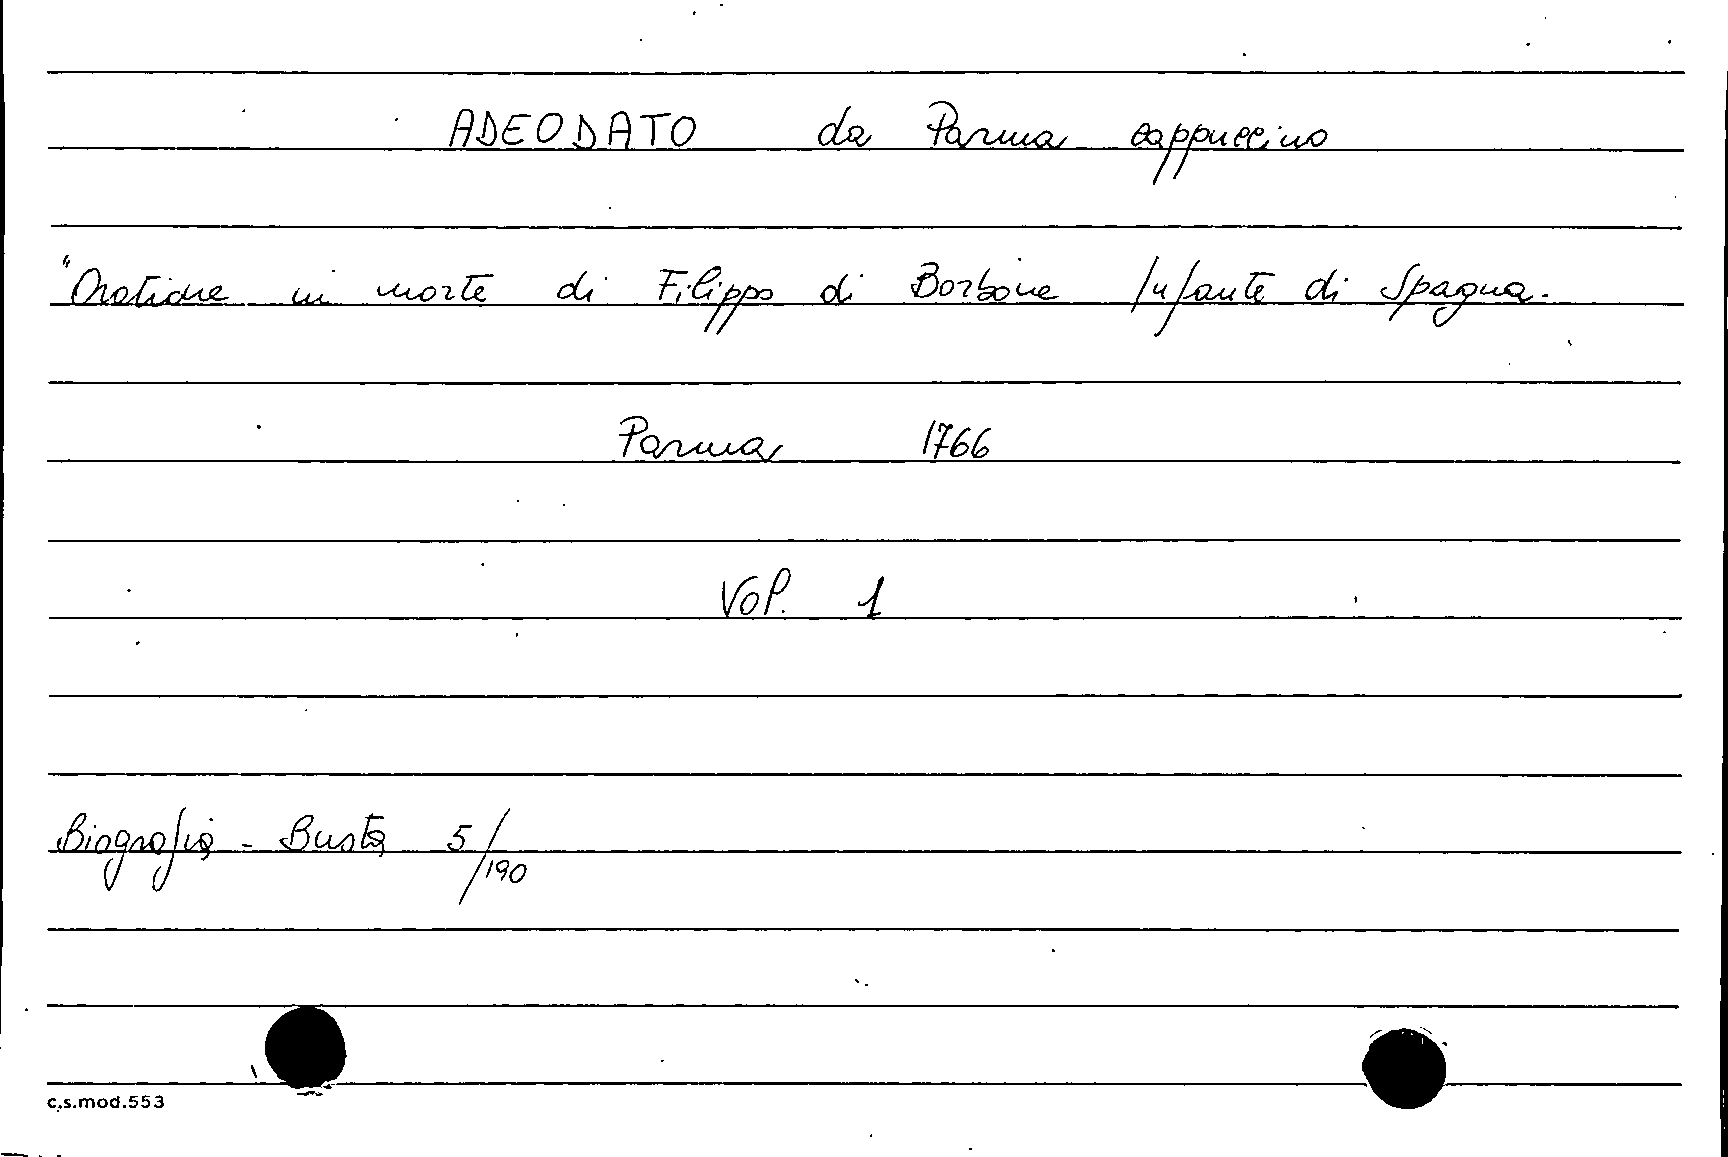 ADEODATO da Parma cappuccino
"Oratione in morte di Filippo di Borbone Infante di Spagna.
Parma 1766
Vol. 1
Biografia - Busta 5/190
c.s.mod.553